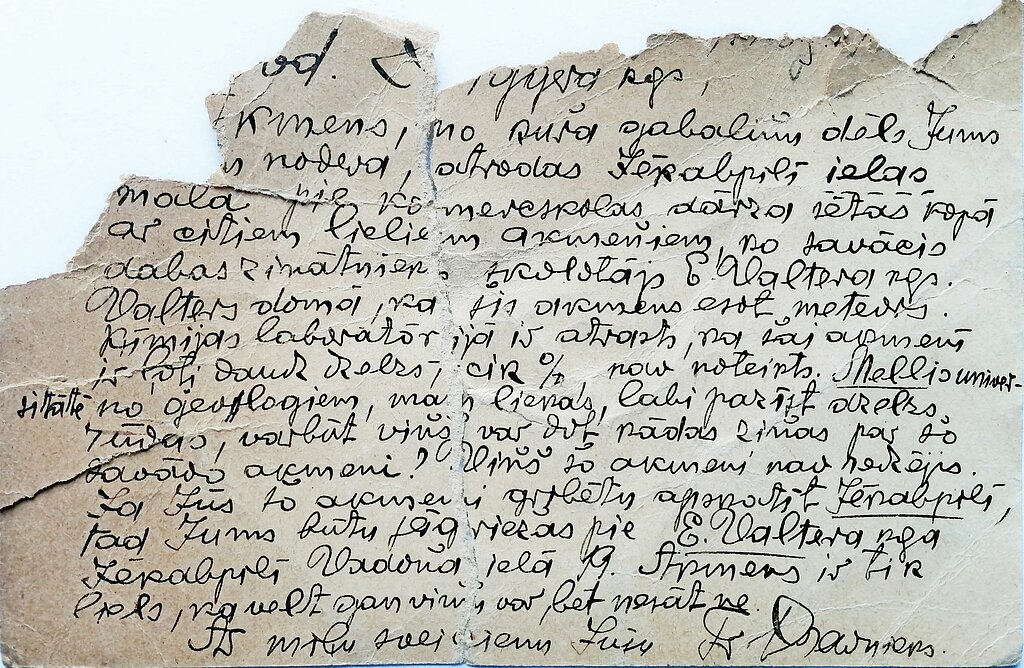 vd.
kmens, no kuŗa gabaliņu dēls Jums
nodeva, atrodas Jēkabpilī ielas
malā pie komercskolas dārza sētas kopā
ar citiem lieliem akmeņiem, ko savācis
dabaszinātniek. skolotājs E. Valtera kgs.
Valters domā, ka šis akmens esot meteors.
Ķīmijas laboratorijā ir atrasts, ka šai akmenī
ir ļoti daudz dzelzs, cik %, nav noteikts. Mellis univer-
sitātē no ģeologiem, man liekas, labi pazīst dzelzs
rūdas, varbūt viņš var dot kādas ziņas par šo
savādo akmeni? Viņš šo akmeni nav redzējis.
Ja Jūs to akmeni gribētu apskatīt Jēkabpilī,
tad Jums būtu jāgriežas pie E. Valtera kga
Jēkabpilī Vadoņa ielā 19. Akmens ir tik
liels, ka velt gan viņu var, bet nesāt ne.
Ar mīļu sveicienu Jūsu